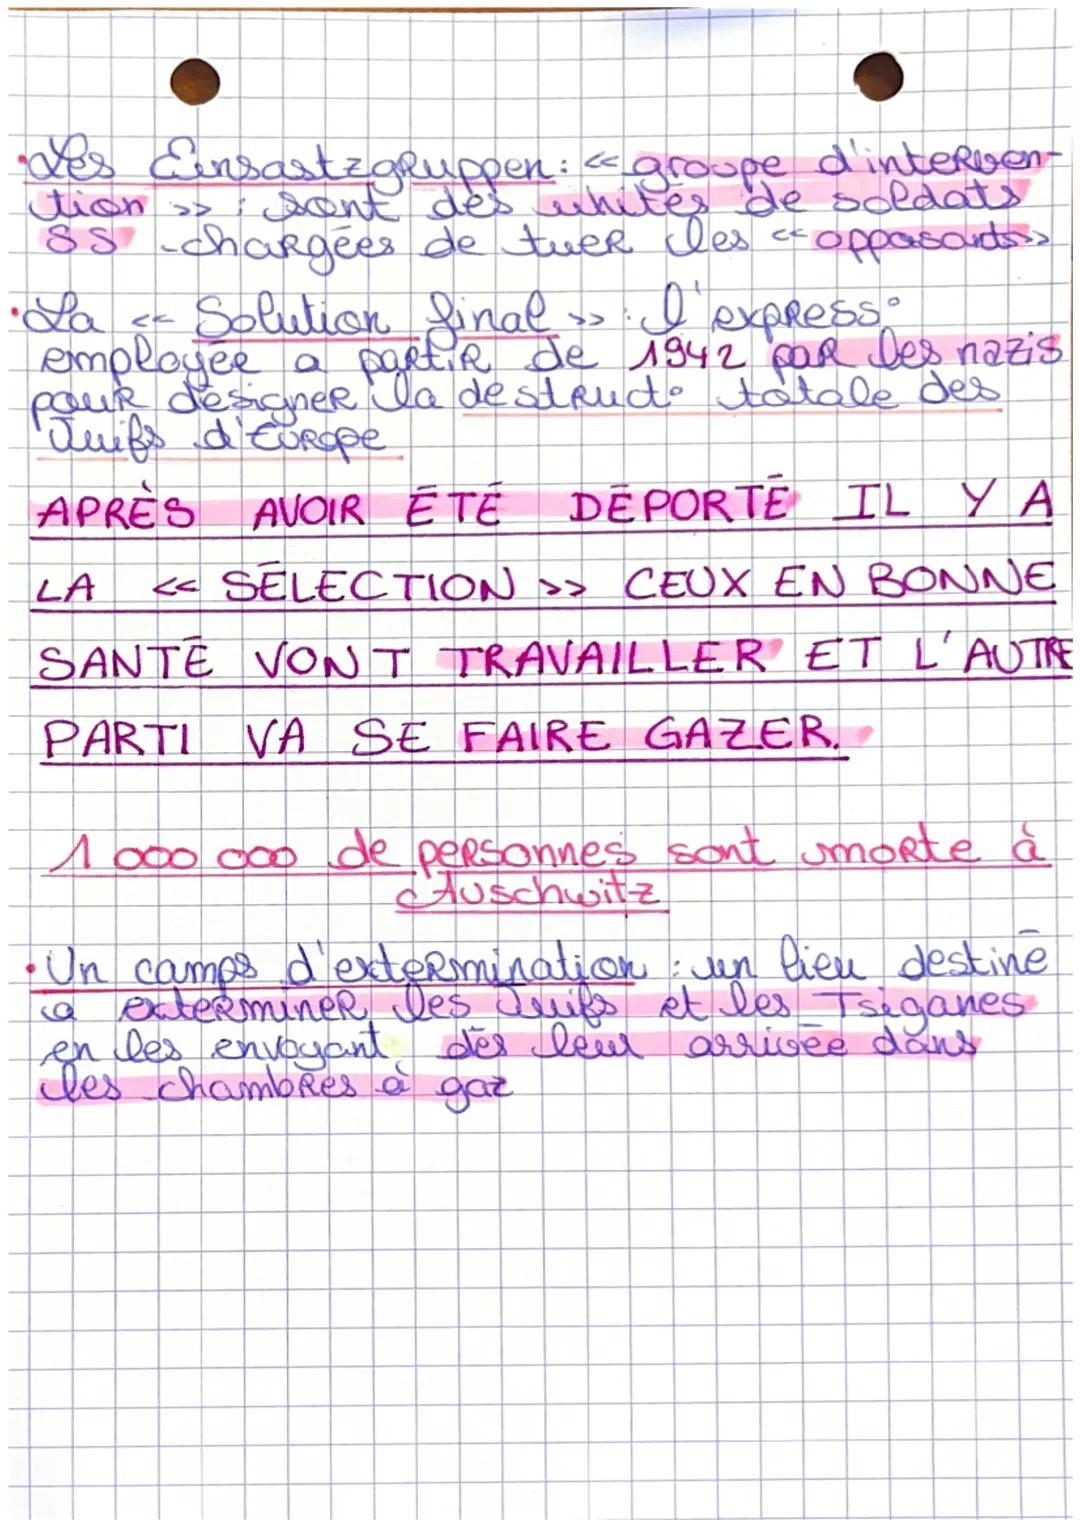 • Les Einsastzgruppen : << groupe d'interven-
tion >> : sont des unités de soldats
SS chargées de tuer les << opposants >>
• La << Solution final >> : l'express°
employée a partir de 1942 par les nazis
pour désigner la destruct° totale des
Juifs d'Europe
APRÈS AVOIR ÉTÉ DÉPORTÉ IL Y A
LA << SÉLECTION >> CEUX EN BONNE
SANTÉ VONT TRAVAILLER ET L'AUTRE
PARTI VA SE FAIRE GAZER.
1 000 000 de personnes sont morte à
Auschwitz
• Un camps d'extermination : un lieu destiné
a exterminer les Juifs et les Tsiganes
en les envoyant dès leur arrivée dans
les chambres à gaz